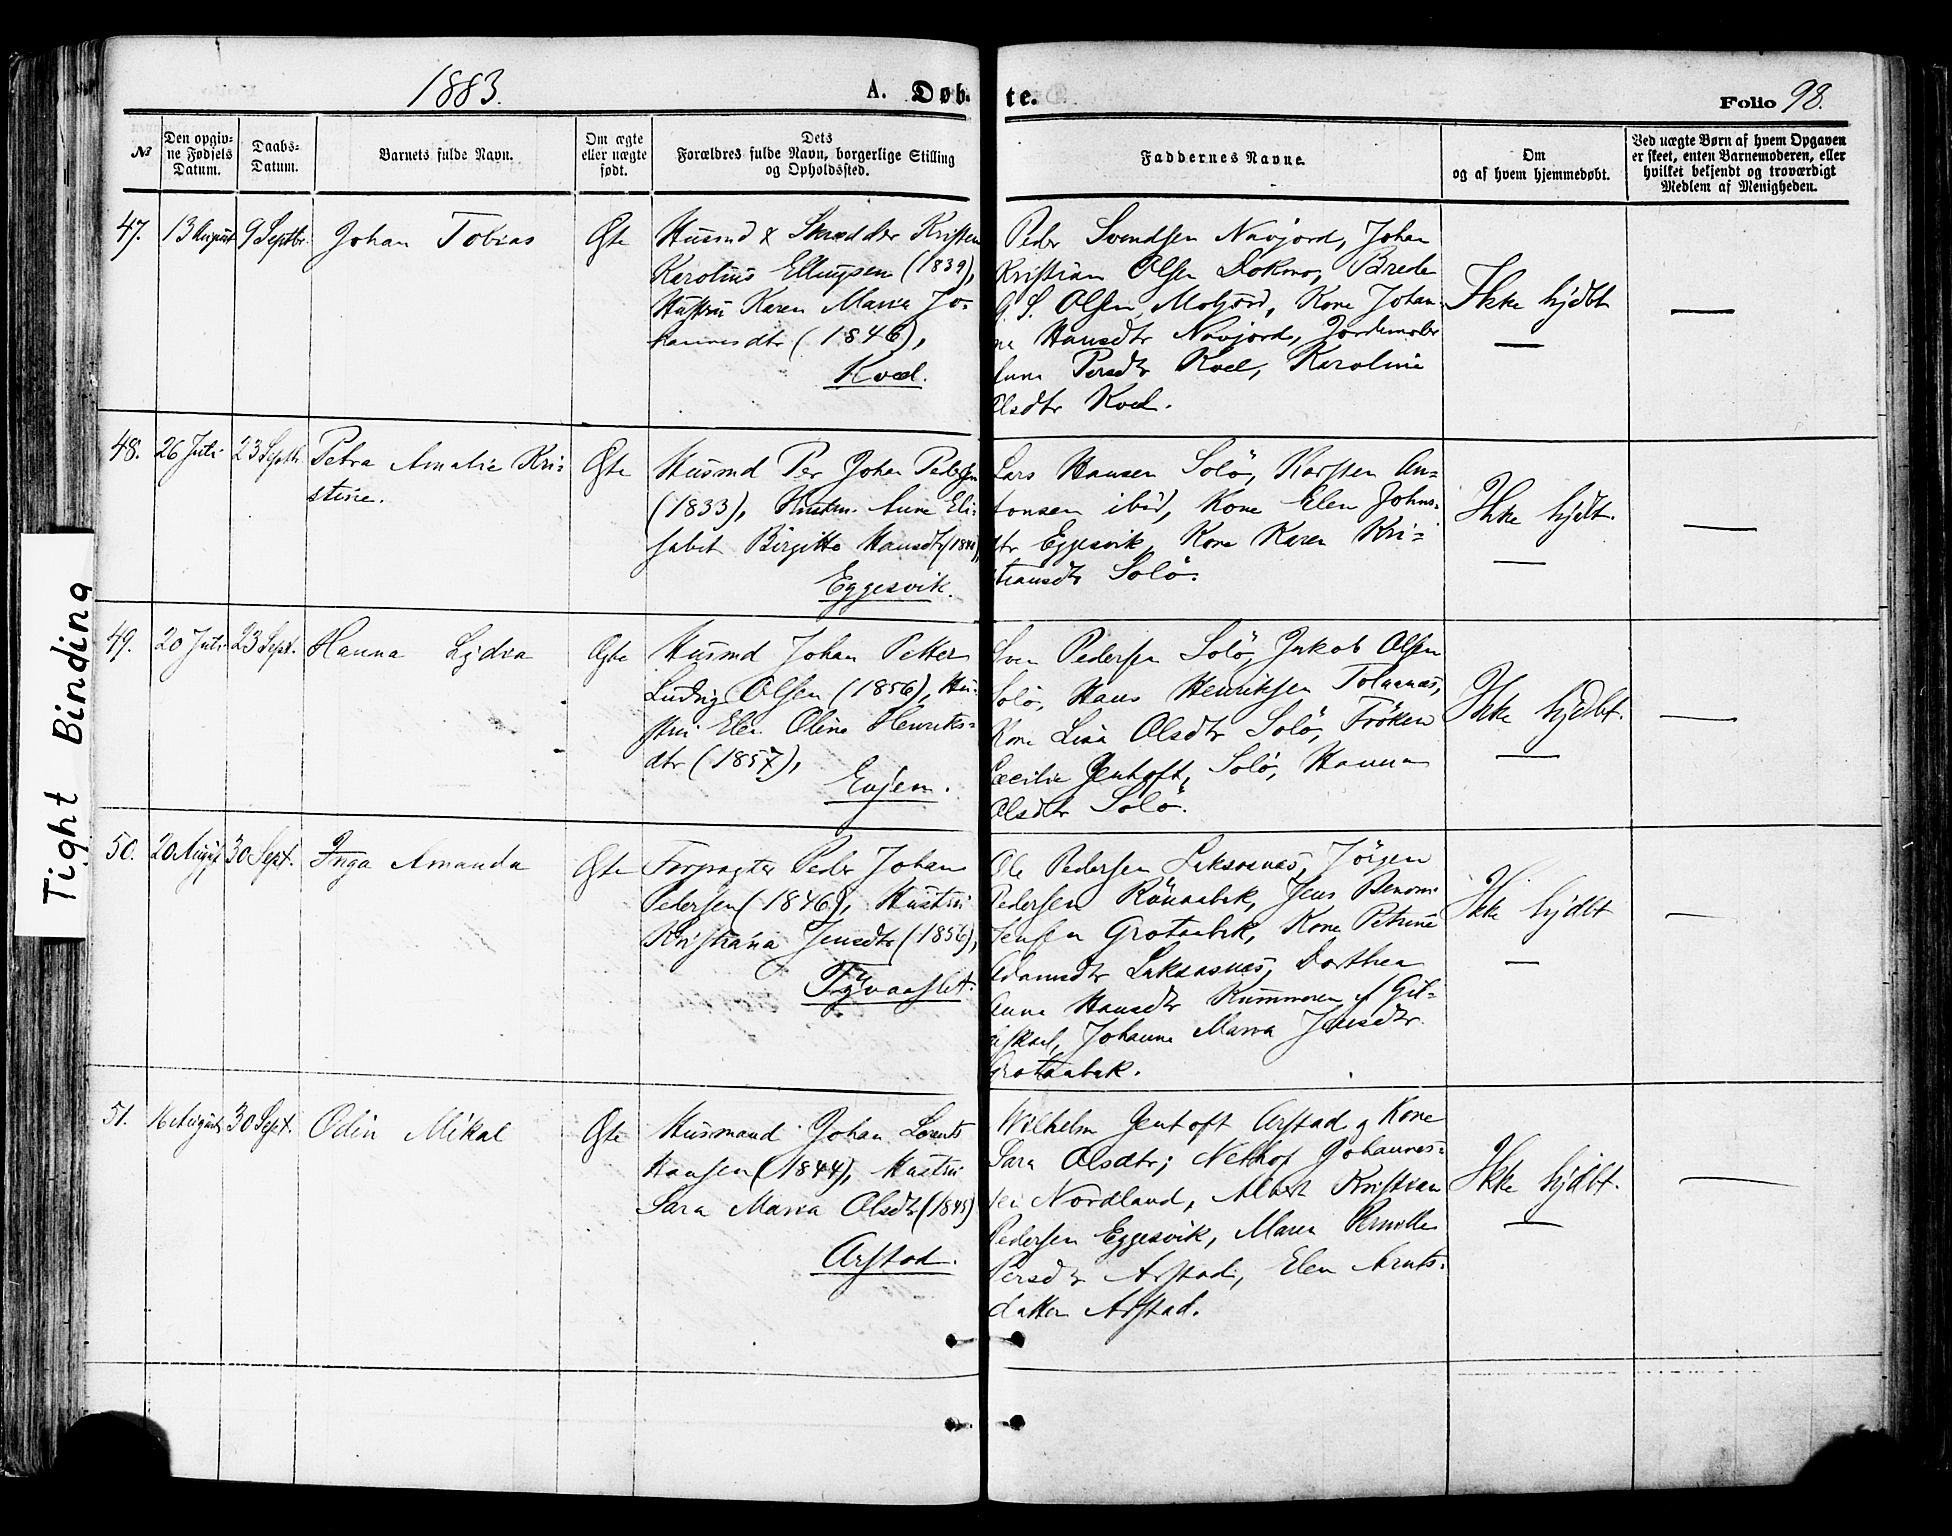 1883.
A. Døbte.
Folio 98.
№
Den opgivne Fødsels Datum.
Daabs-Datum.
Barnets fulde Navn.
Om ægte eller uægte født.
Dets Forældres fulde Navn, borgerlige Stilling og Opholdssted.
Faddernes Navne.
Om og af hvem hjemmedøbt.
Ved uægte Børn af hvem Opgaven er skeet, enten Barnemoderen, eller hvilket bekjendt og troværdigt Medlem af Menigheden.
47.
13 August
9 Septbr.
Johan Tobias
Ægte
Husmd & Skrædder Kristen
Karolius Ellingsen (1839),
Hustru Karen Maria Jo-
hannesdtr (1846),
Kvæl.
Peder Svendsen Navjord, Johan
Kristian Olsen Dokmo, Brede
G. S. Olsen, Moljord, Kone Johan-
na Hansdtr Navjord, Jordemoder
Anna Persdtr Kvæl, Karoline
Olsdtr Kvæl.
Ikke hjdbt
48.
26 Juli
23 Septb.
Petra Amalie Kri-
stine.
Ægte
Husmd Per Johan Pedersen
(1833), Hustru Anne Eli-
sabet Birgitte Hansdtr
Eggesvik.
Lars Hansen Solö, Karsten An-
tonsen ibid, Kone Elen Johns-
dtr Eggesvik, Kone Karen Kri-
stiansdtr Solö.
Ikke hjdt.
49.
20 Juli
23 Sept.
Hanna Lydia
Ægte
Husmd Johan Petter
Ludvig Olsen (1856), Hu-
stru Elen Oline Henriks-
dtr (1857),
Evjen.
Sven Pedersen Solö, Jakob Olsen
Solö, Hans Henriksen Tolaanæs,
Kone Lisa Olsdtr Solö, Fröken
Cecilie Jentoft, Solö, Hanna
Olsdtr Solö.
Ikke hjdbt.
50.
20 August
30 Sept.
Inga Amanda
Ægte
Forpagter Peder Johan
Pedersen (1846), Hustru
Kristiana Jensdtr (1856),
Fygvaaslet.
Ole Pedersen Laksaasnæs, Jörgen
Pedersen Rönaabæk, Jens Benoni
Jensen Grotaabæk, Kone Petrine
Adamsdtr Laksaasnæs, Dorthea
Anna Hansdtr Kummoren
Johanna Maria Jensdtr
Grotaabæk.
Ikke hjdbt
51.
16 August
30 Sept.
Odin Mikal
Ægte
Husmand Johan Lorents
Hansen (1844), Hustru
Sara Maria Olsdtr (1845)
Arstad.
Wilhelm Jentoft Arstad og Kone
Sara Olsdtr; Johannes-
sen Nordland, Albert Kristian
Pedersen Eggesvik, Maren Pernille
Persdtr Arstad, Elen Arnts-
datter Arstad.
Ikke hjdbt.
Tight Binding